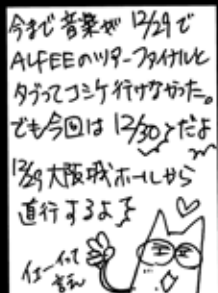 今まで音楽が12/29で
ALFEEのツアーファイナルと
タブってコミケ行けなかった。
でも今回は12/30だよ
12/29大阪城ホールから
直行するよ
イエーイって